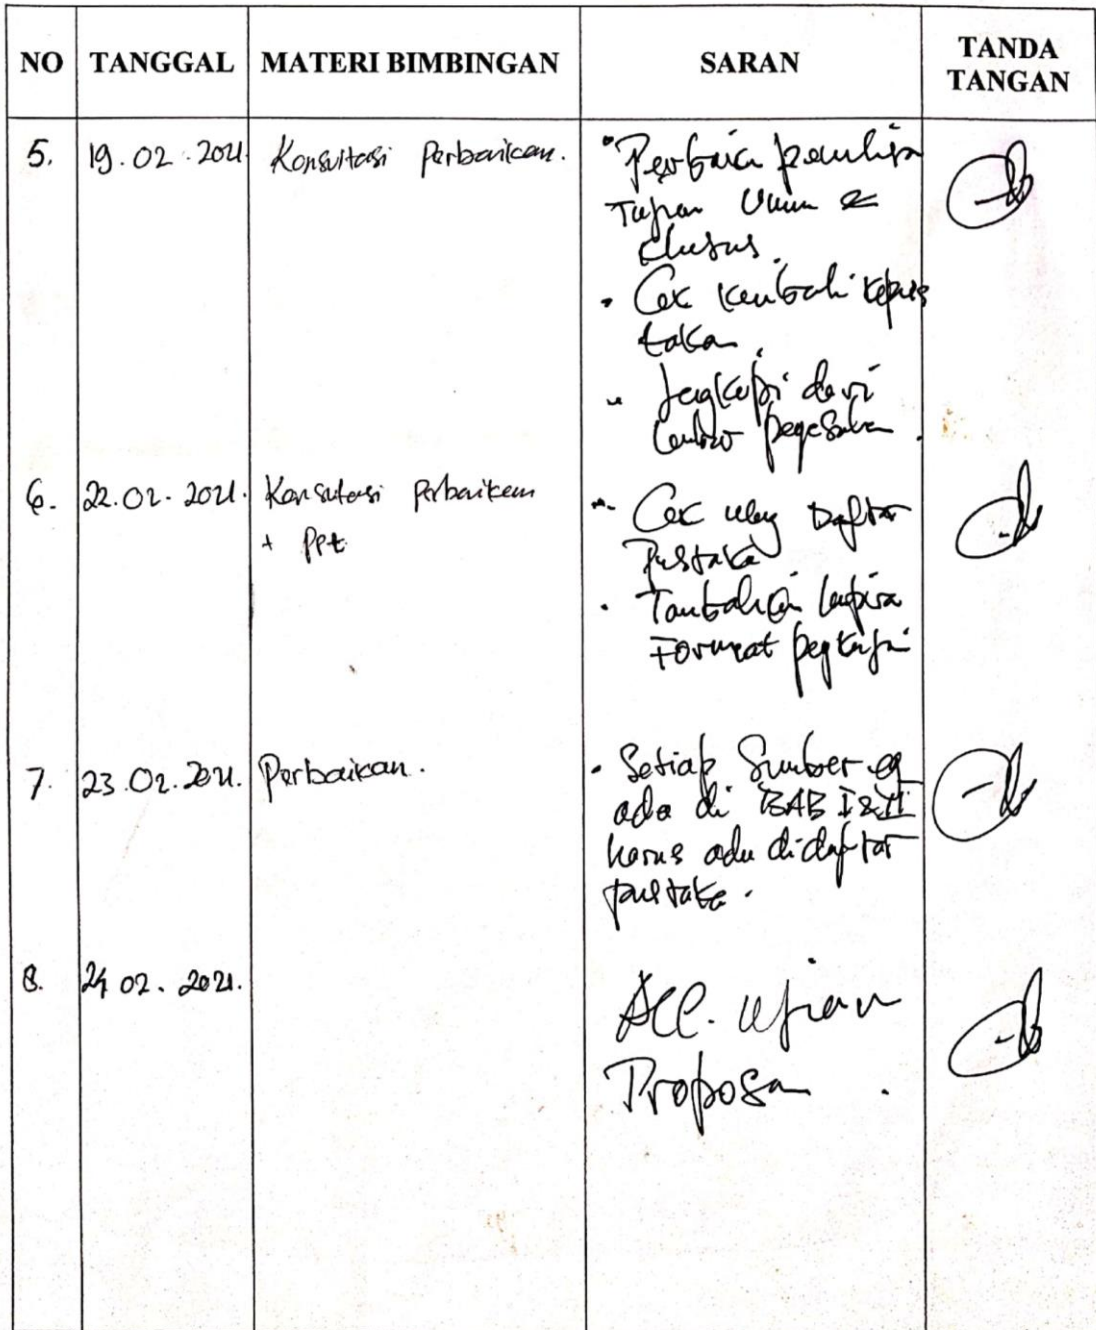 NO TANGGAL MATERI BIMBINGAN SARAN TANDA TANGAN
5. 19.02.2021 Konsultasi Perbaikan.
Perbaiki penulisan
Tujuan Umum &
khusus.
Cek kembali kepus
takaan
Lengkapi dari
lembar pengesahan.
6. 22.02.2021. Konsultasi Perbaikan
+ Ppt
Cek ulang Daftar
Pustaka
Tambahkan lampiran
Format pengkajian
7. 23.02.2021. Perbaikan.
Setiap Sumber yg
ada di BAB I & II
harus ada di daftar
pustaka.
8. 24 02. 2021.
Acc. Ujian
Proposal